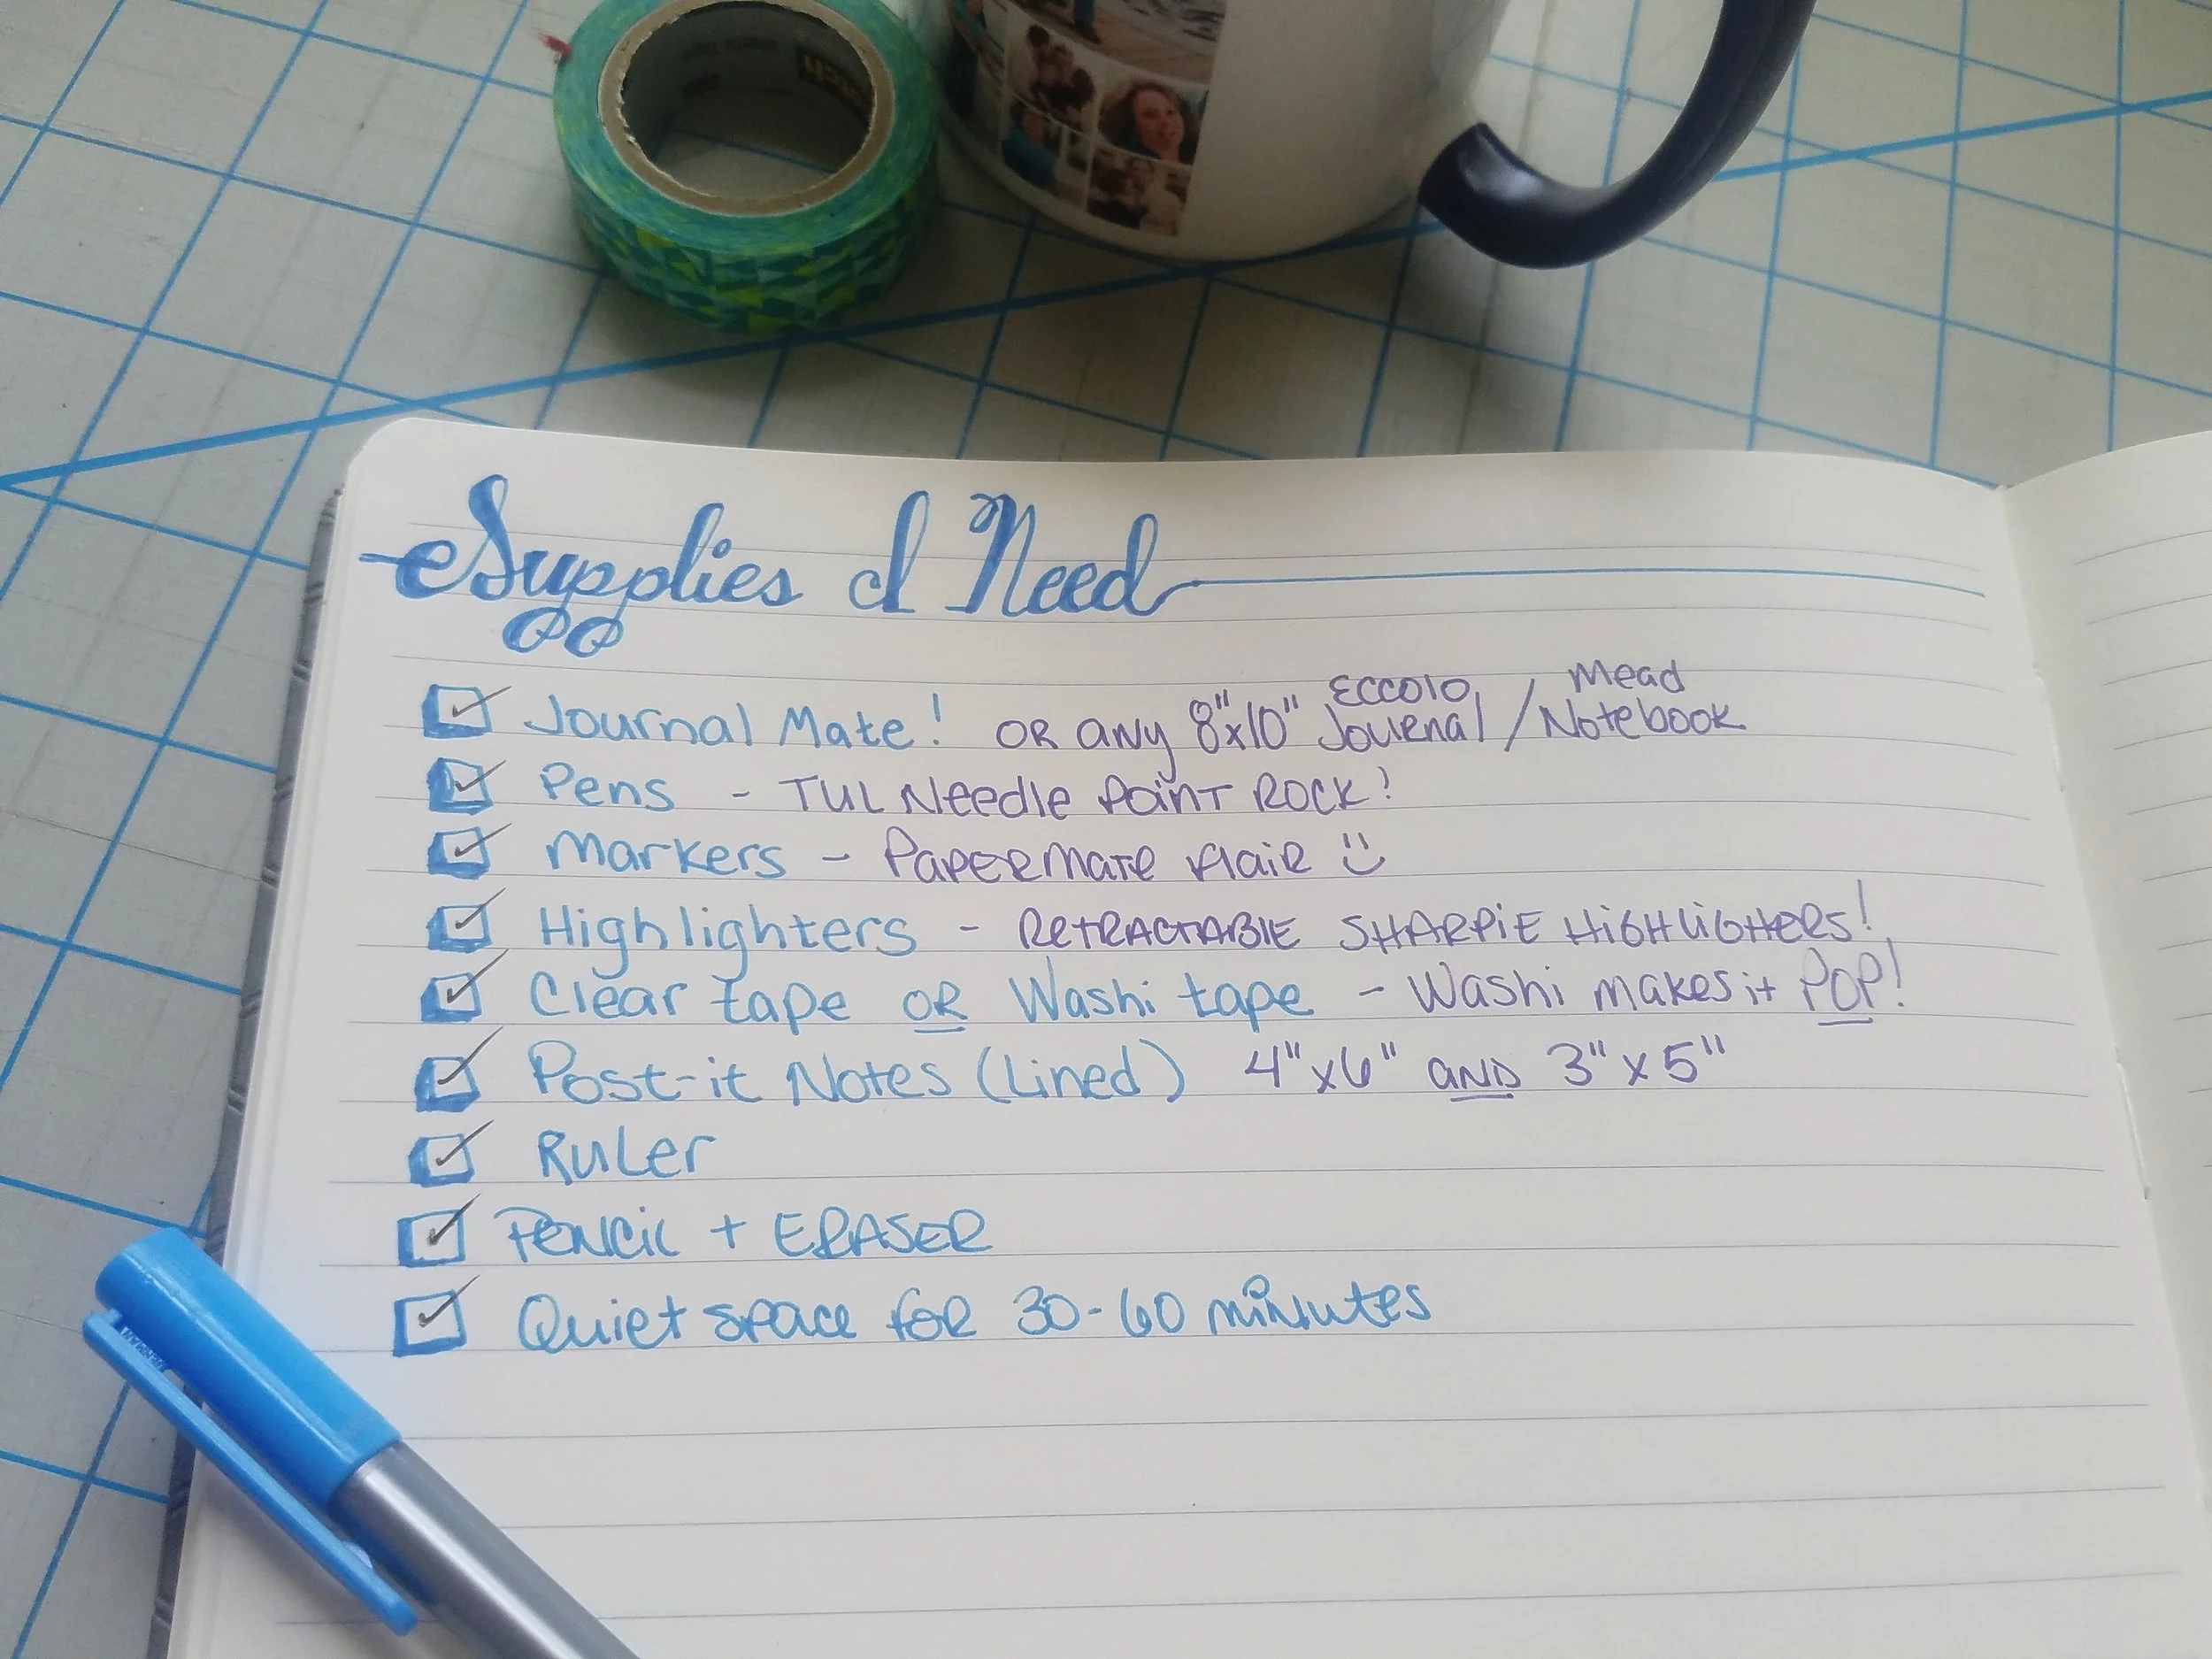 Supplies I Need
Eccolo Mead
Journal Mate! OR ANY 8"x10" Journal / Notebook
Pens - TUL Needle Point ROCK!
Markers - PaperMate Flair
Highlighters - RETRACTABLE SHARPIE HIGHLIGHTERS!
Clear tape OR Washi tape - Washi makes it POP!
Post-it Notes (Lined) 4"x6" AND 3"x5"
Ruler
Pencil + ERASER
Quiet space for 30-60 minutes